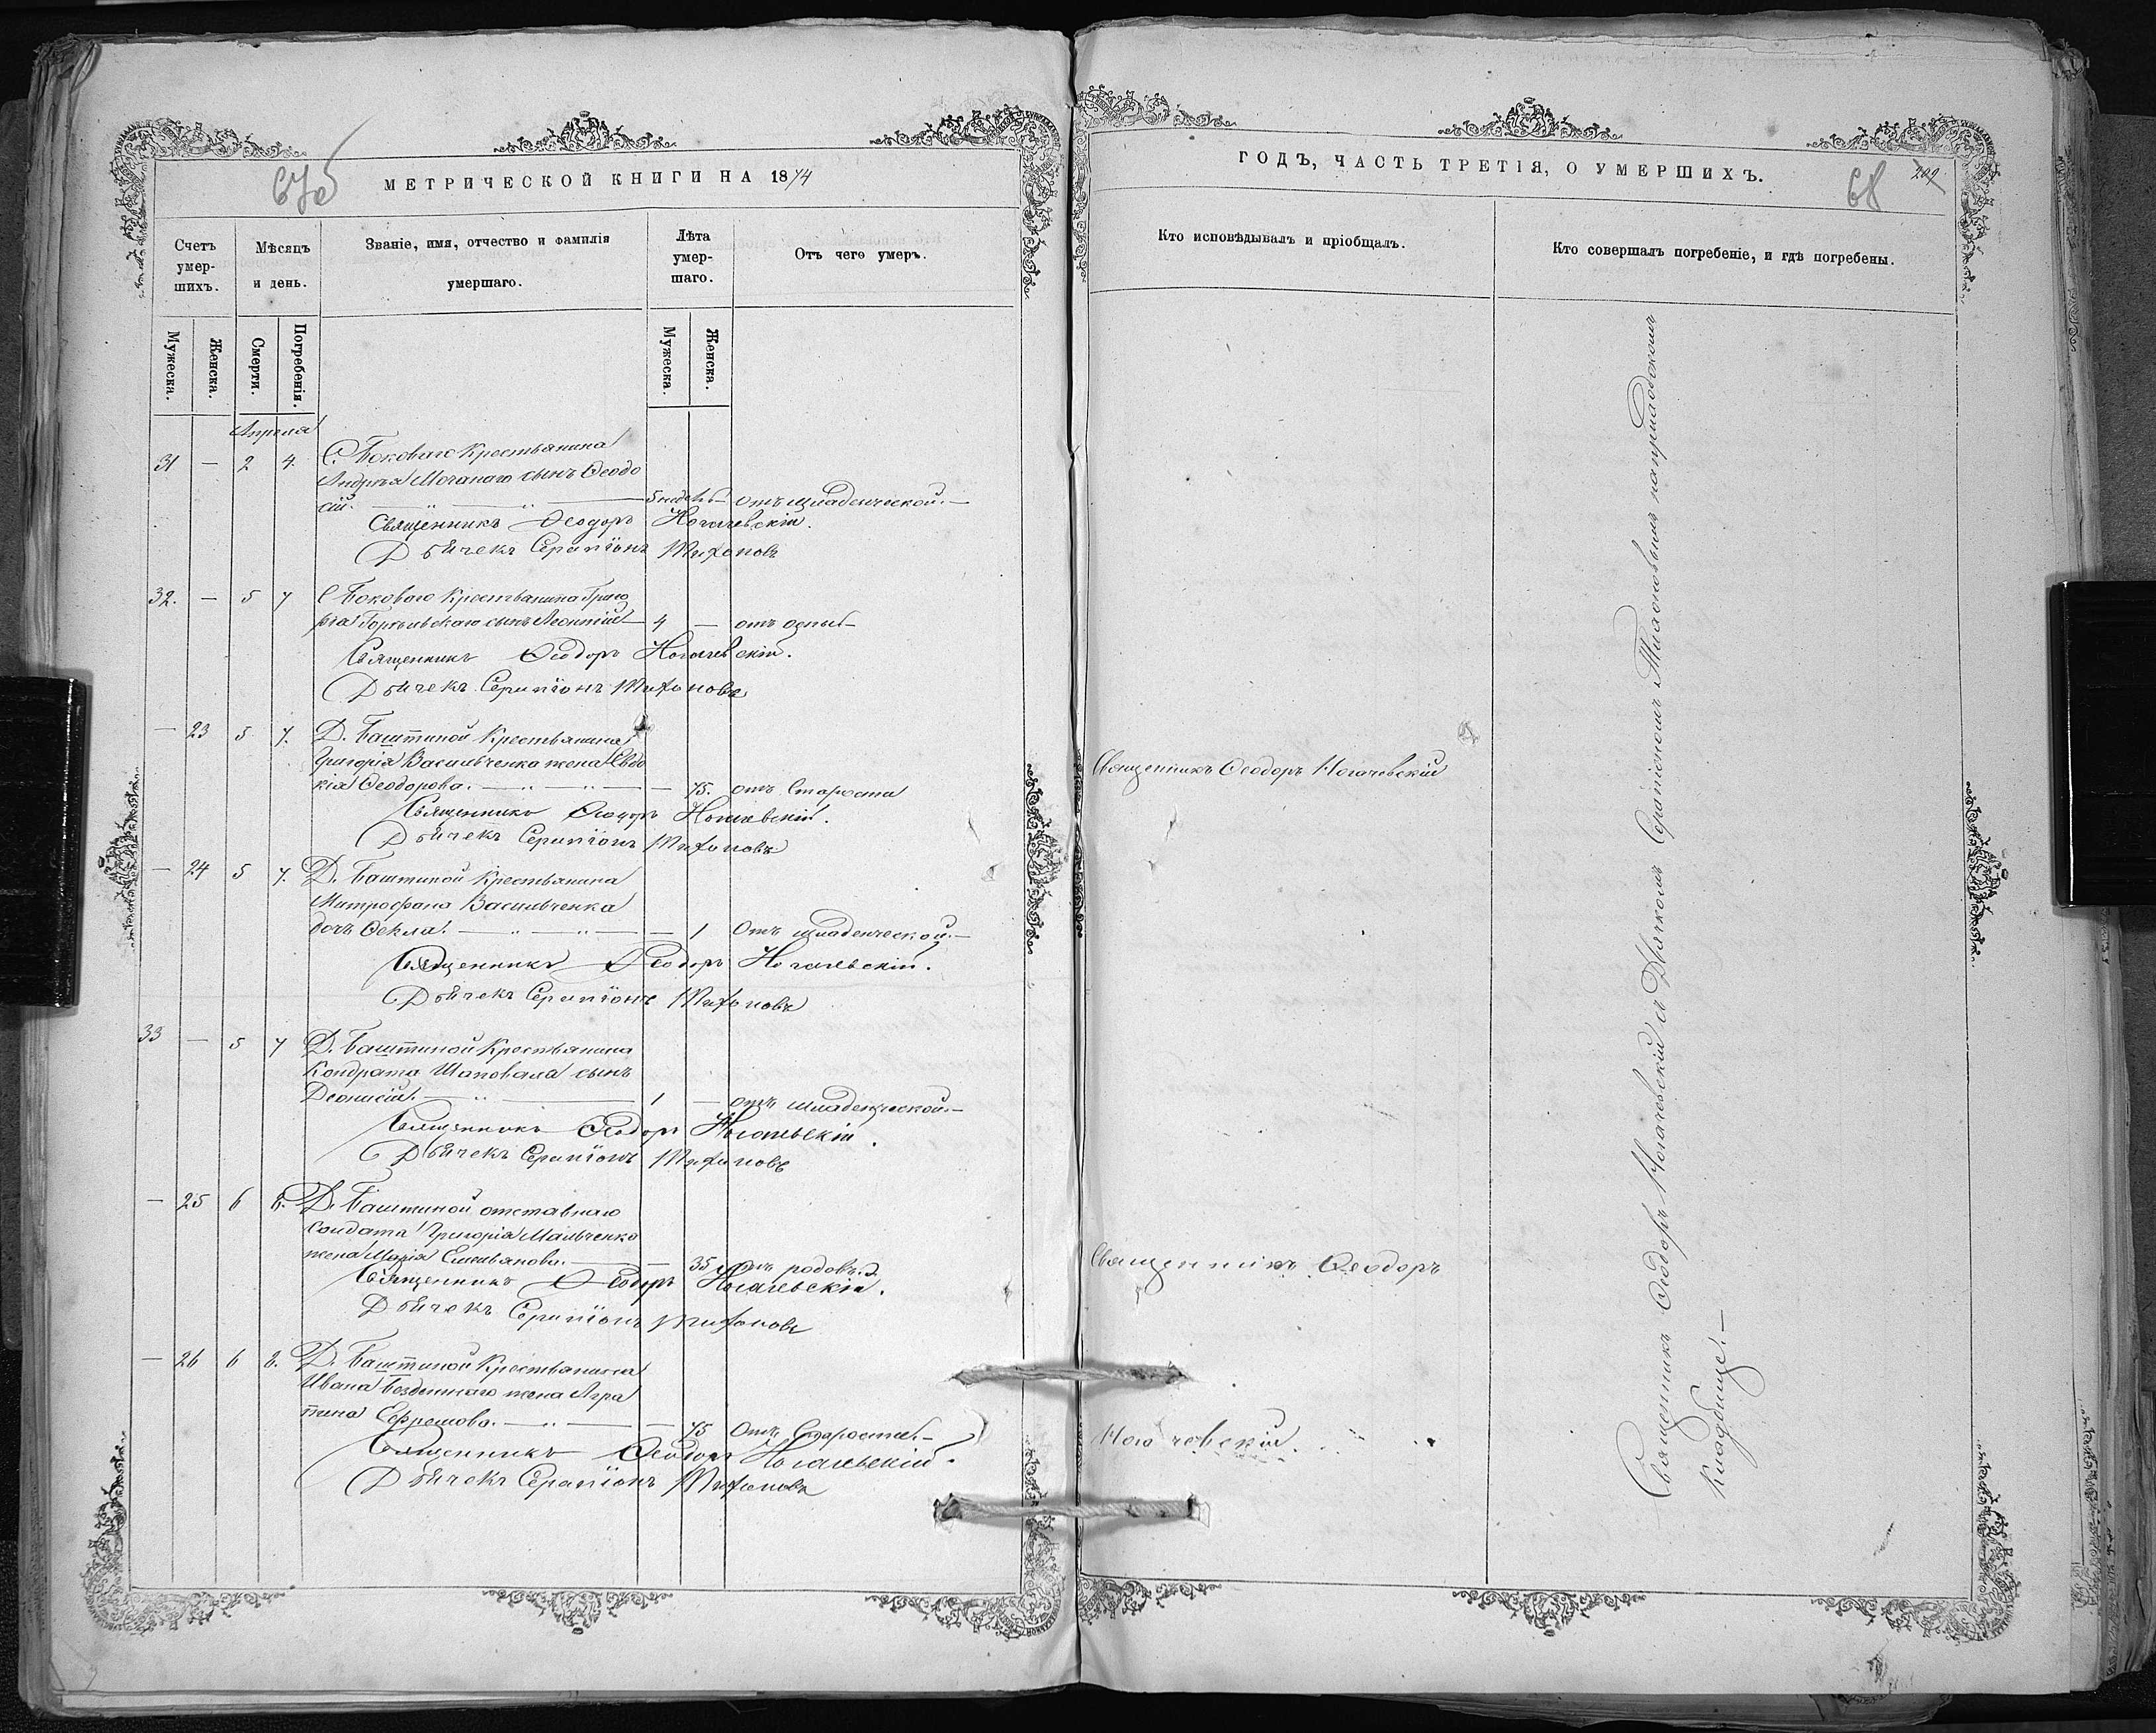 67об
МЕТРИЧЕСКОЙ КНИГИ НА 1874
Счетъ умер- шихъ.
Мѣсяцъ и день.
Званіе, имя, отчество и фамилія умершаго.
Лѣта умер- шаго.
Отъ чего умеръ.
Мужеска.
Женска.
Смерти.
Погребенія.
Мужеска.
Женска.
Апреля
31 — 2 4. С. Боковаго Крестьянина
Андрея Мочанаго сынъ Ѳеодо
сій. 5 недель — отъ младенческой.—
Священникъ Ѳеодоръ Ногачевскій.
Дьячекъ Серапіонъ Тихоновъ
32. — 5 7 С Бокового Крестьянина Григо
рія сынъ Леонтій — 4 — отъ оспы—
Священникъ Ѳеодоръ Ногачевскій.
Дьячекъ Серапіонъ Тихоновъ
— 23 5 7. Д. Баштиной Крестьянина
Григорія Васильченка жена Евдо
кія Ѳеодорова. — 75. отъ Старости
Священникъ Ѳеодоръ Ногачевскій.
Дьячекъ Серапіонъ Тихоновъ
— 24 5 7. Д. Баштиной Крестьянина
Митрофана Васильченка
дочь Ѳекла. — 1 Отъ младенческой.—
Священникъ Ѳеодоръ Ногачевскій.
Дьячекъ Серапіонъ Тихоновъ
33 — 5 7 Д. Баштиной Крестьянина
Кондрата Шаповала сынъ
Деонисій. 1 — отъ младенческой.—
Священникъ Ѳеодоръ Ногачевскій.
Дьячекъ Серапіонъ Тихоновъ
— 25 6 8. Д. Баштиной отставнаго
Солдата Григорія Мальченко
жена Марія Емельянова. — 35 Отъ родовъ.
Священникъ Ѳеодоръ Ногачевскій.
Дьячекъ Серапіонъ Тихоновъ
— 26 6 8. Д. Баштиной Крестьянина
Ивана жена Агра
пина Ефремова. — 75 Отъ Старости.—
Священникъ Ѳеодоръ Ногачевскій.
Дьячекъ Серапіонъ Тихоновъ
ГОДЪ, ЧАСТЬ ТРЕТІЯ, О УМЕРШИХЪ.
68 209
Кто исповѣдывалъ и пріобщалъ.
Кто совершалъ погребеніе, и гдѣ погребены.
Священникъ Ѳеодоръ Ногачевскій
Священникъ Ѳеодоръ
Ногачевскій.
Священникъ Ѳеодоръ Ногачевскій съ Дьячкомъ Серапіономъ Тихоновымъ на приходскомъ
кладбище.—